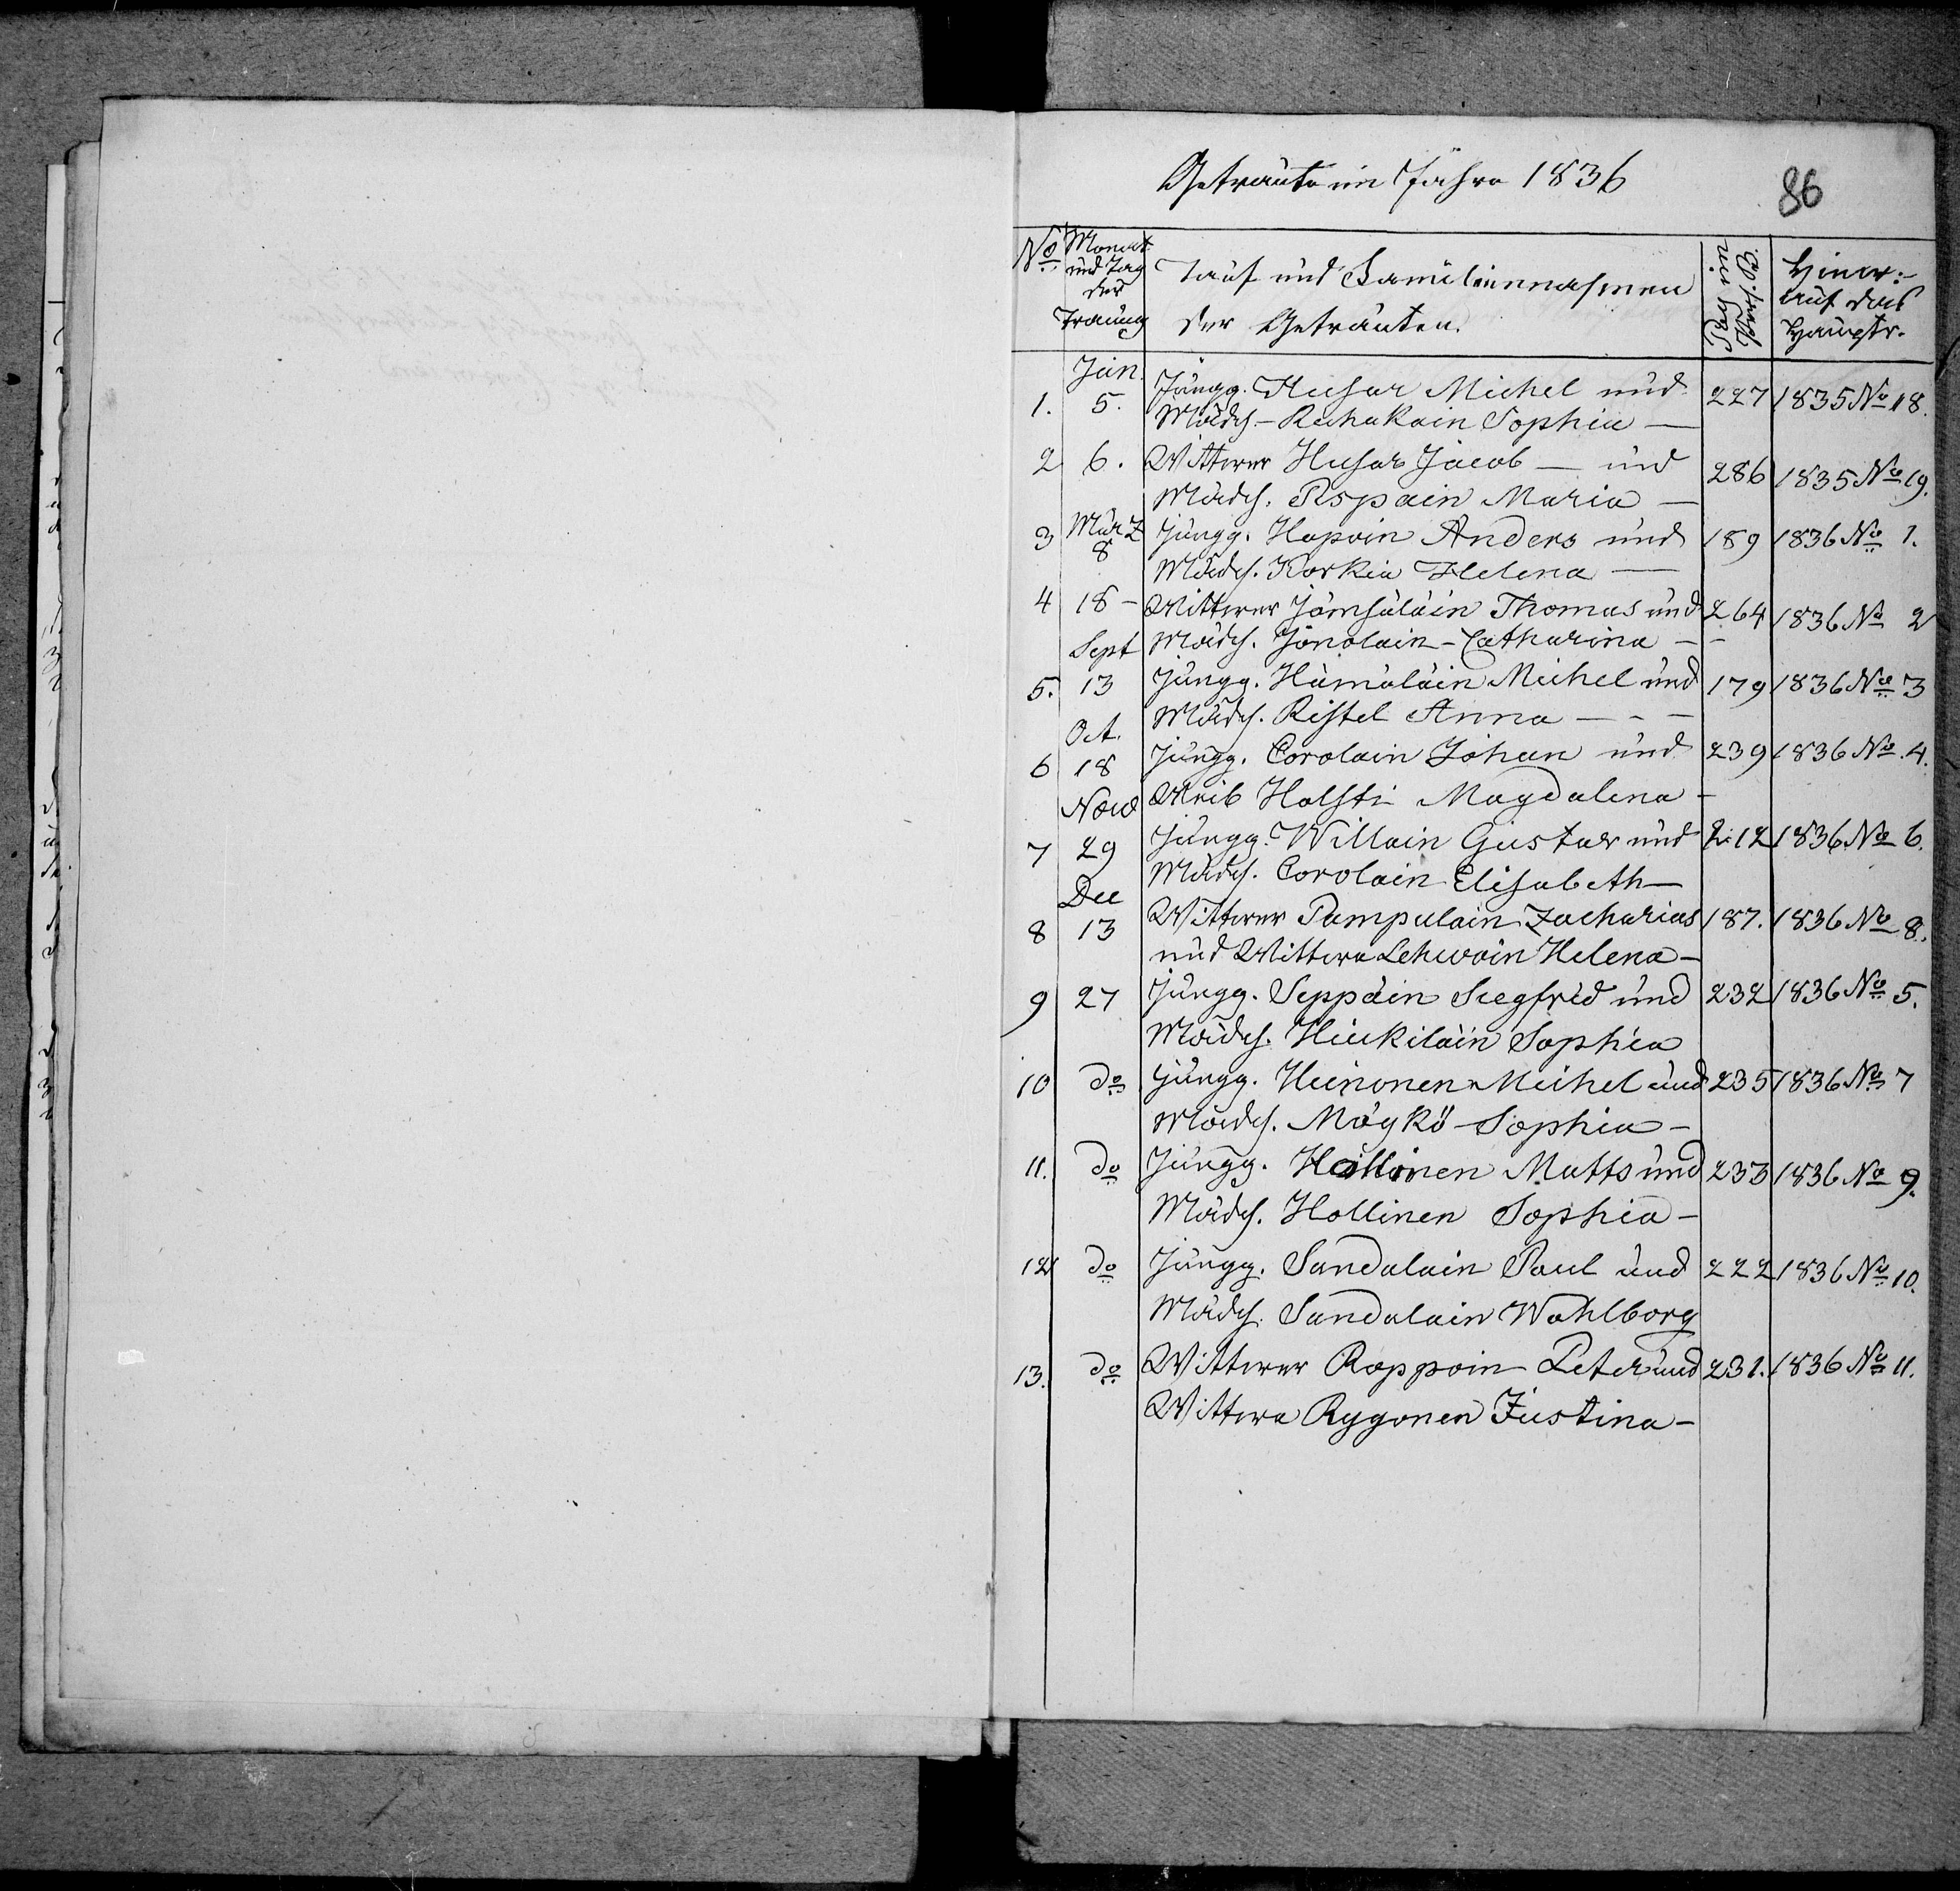 Getraute im Jahre 1836
86
No Monat und Tag der Trauung Tauf und Familiennahmen der Getrauten. Seit. im Pers. B. Hinw: auf das Hauptr.
Jan.
1. 5. Jungg. Husar Michel und 227 1835 No 18.
Mädch. - Rahakain Sophia —
2 6. Wittwer Husar Jacob — und 286 1835 No 19.
Mädch. Rspain Maria —
März
3 8 Jungg. Hapoin Anders und 189 1836 No 1.
Mädch. Korkia Helena —
4 18 - Wittwer Jämsäläin Thomas und 264 1836 No 2
Mädch. Jonolain - Catharina - -
Sept
5. 13 Jungg. Hämäläin Michel und 179 1836 No 3
Mädch. Ristel Anna - - -
Oct.
6 18 Jungg. Corolain Johan und 239 1836 No. 4.
Weib Holsti Magdalena -
Nov
7 29 Jungg. Willain Gustav und 212 1836 No 6.
Mädch. Corolain Elisabeth —
Dec
8 13 Wittwer Pampulain Zacharias 187. 1836 No 8.
und Wittwe Lehwoin Helena -
9 27 Jungg. Seppäin Siegfrid und 232 1836 No 5.
Mädch. Hiukiläin Sophia
10 do Jungg. Heinonen Michel und 235 1836 No 7
Mädch. Mäykö Sophia -
11. do Jungg. Matts und 233 1836 No 9.
Mädch. Hollinen Sophia -
12 do Jungg. Sandalain Paul und 222 1836 No 10.
Mädch. Sandalain Wahlborg
13. do Wittwer Roppoin Peter und 231. 1836 No 11.
Wittwe Rygonen Justina -